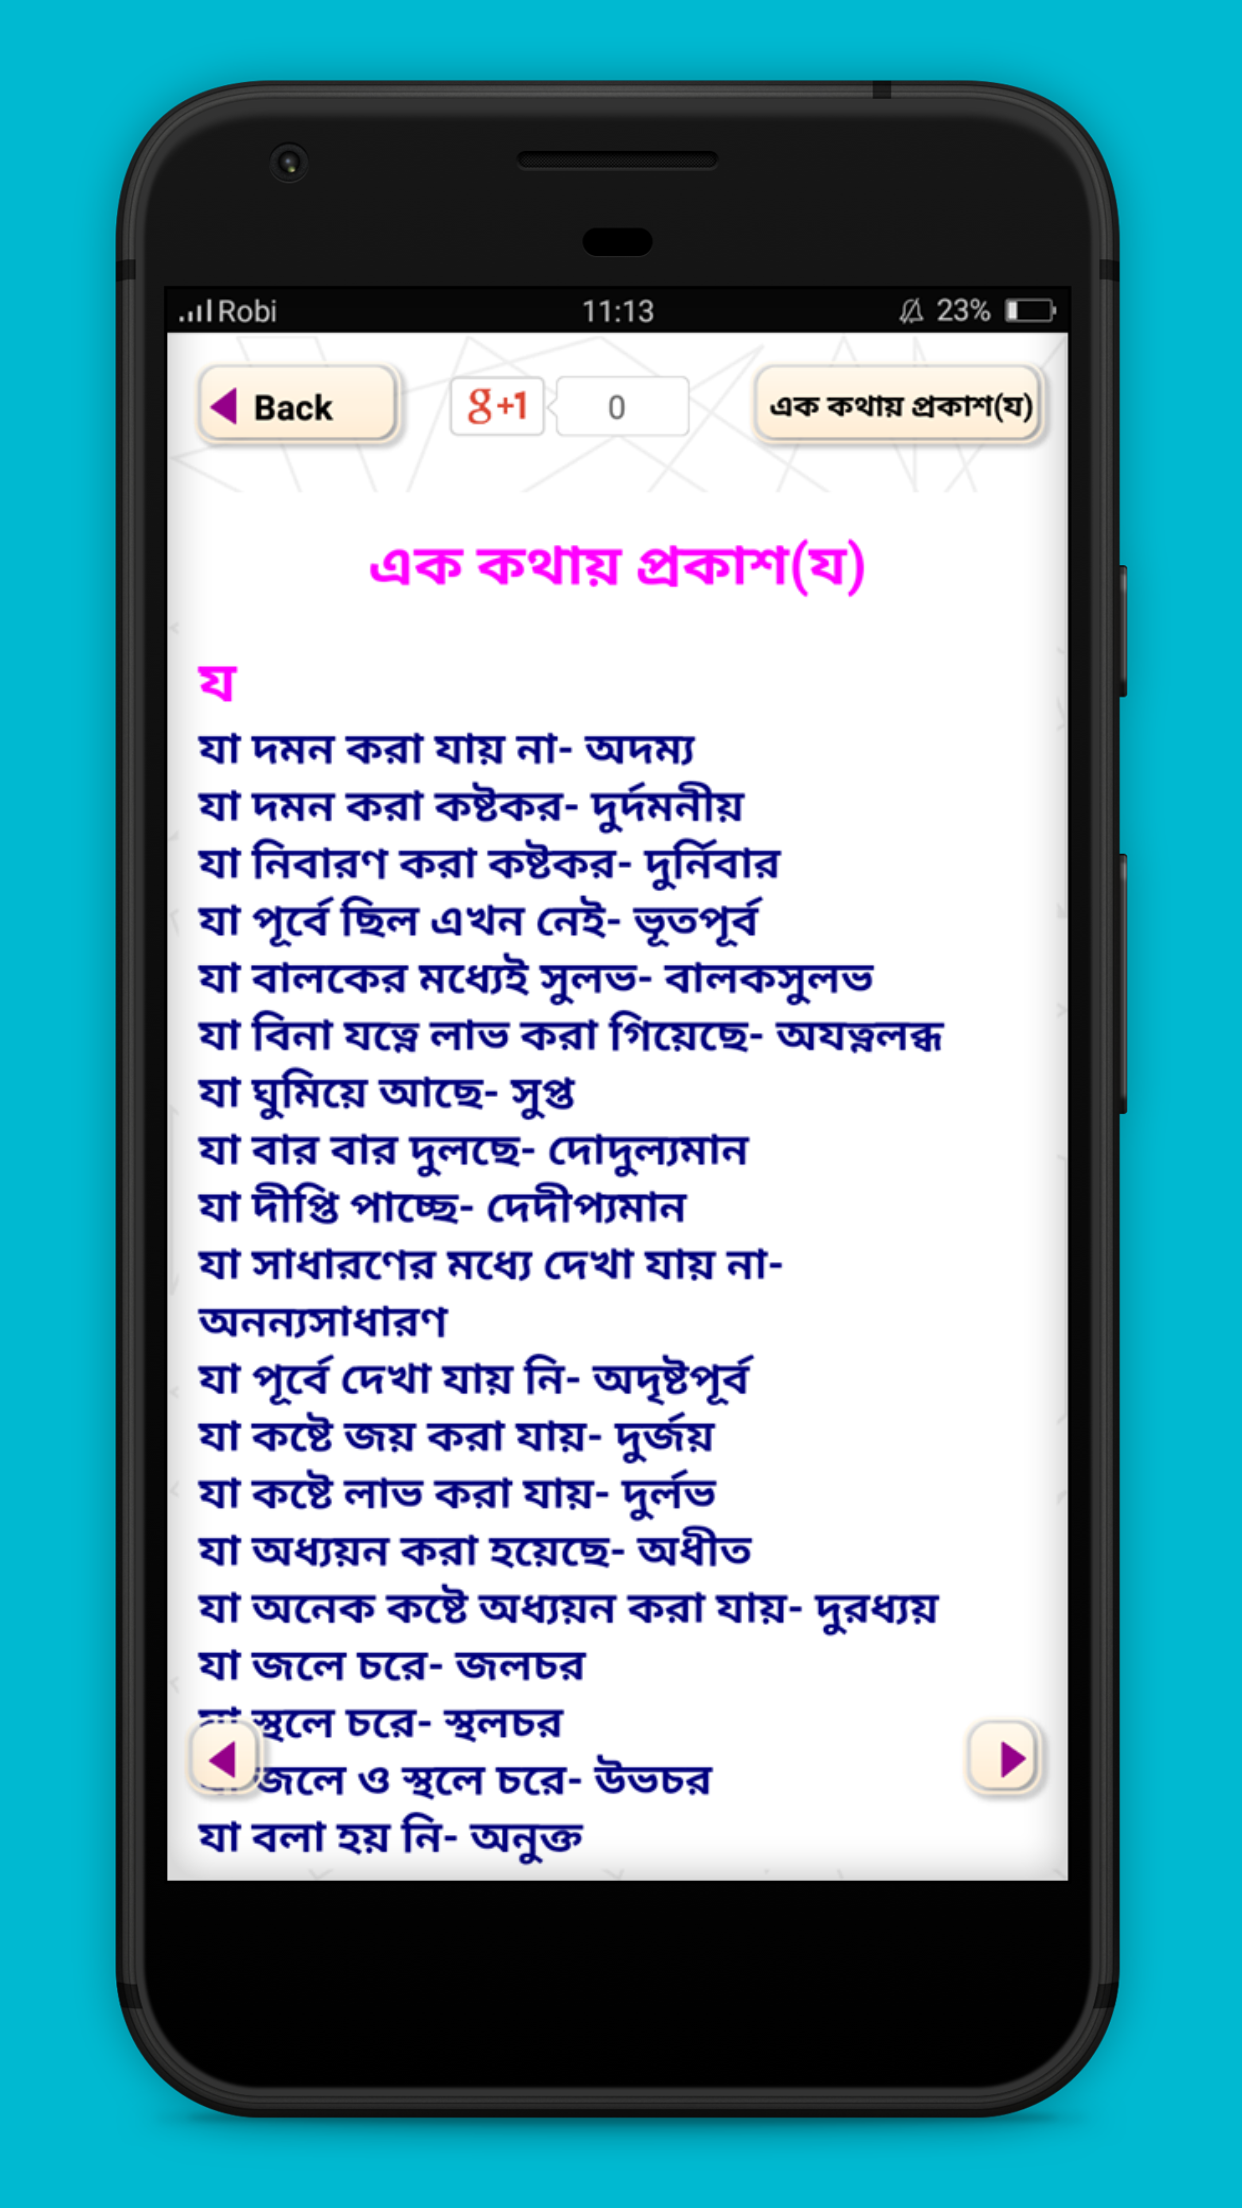 Robi 11:13 23%
Back g+1 0 এক কথায় প্রকাশ(য)
এক কথায় প্রকাশ(য)
য
যা দমন করা যায় না- অদম্য
যা দমন করা কষ্টকর- দুর্দমনীয়
যা নিবারণ করা কষ্টকর- দুর্নিবার
যা পূর্বে ছিল এখন নেই- ভূতপূর্ব
যা বালকের মধ্যেই সুলভ- বালকসুলভ
যা বিনা যত্নে লাভ করা গিয়েছে- অযত্নলব্ধ
যা ঘুমিয়ে আছে- সুপ্ত
যা বার বার দুলছে- দোদুল্যমান
যা দীপ্তি পাচ্ছে- দেদীপ্যমান
যা সাধারণের মধ্যে দেখা যায় না-
অনন্যসাধারণ
যা পূর্বে দেখা যায় নি- অদৃষ্টপূর্ব
যা কষ্টে জয় করা যায়- দুর্জয়
যা কষ্টে লাভ করা যায়- দুর্লভ
যা অধ্যয়ন করা হয়েছে- অধীত
যা অনেক কষ্টে অধ্যয়ন করা যায়- দুরধ্যয়
যা জলে চরে- জলচর
যা স্থলে চরে- স্থলচর
জলে ও স্থলে চরে- উভচর
যা বলা হয় নি- অনুক্ত